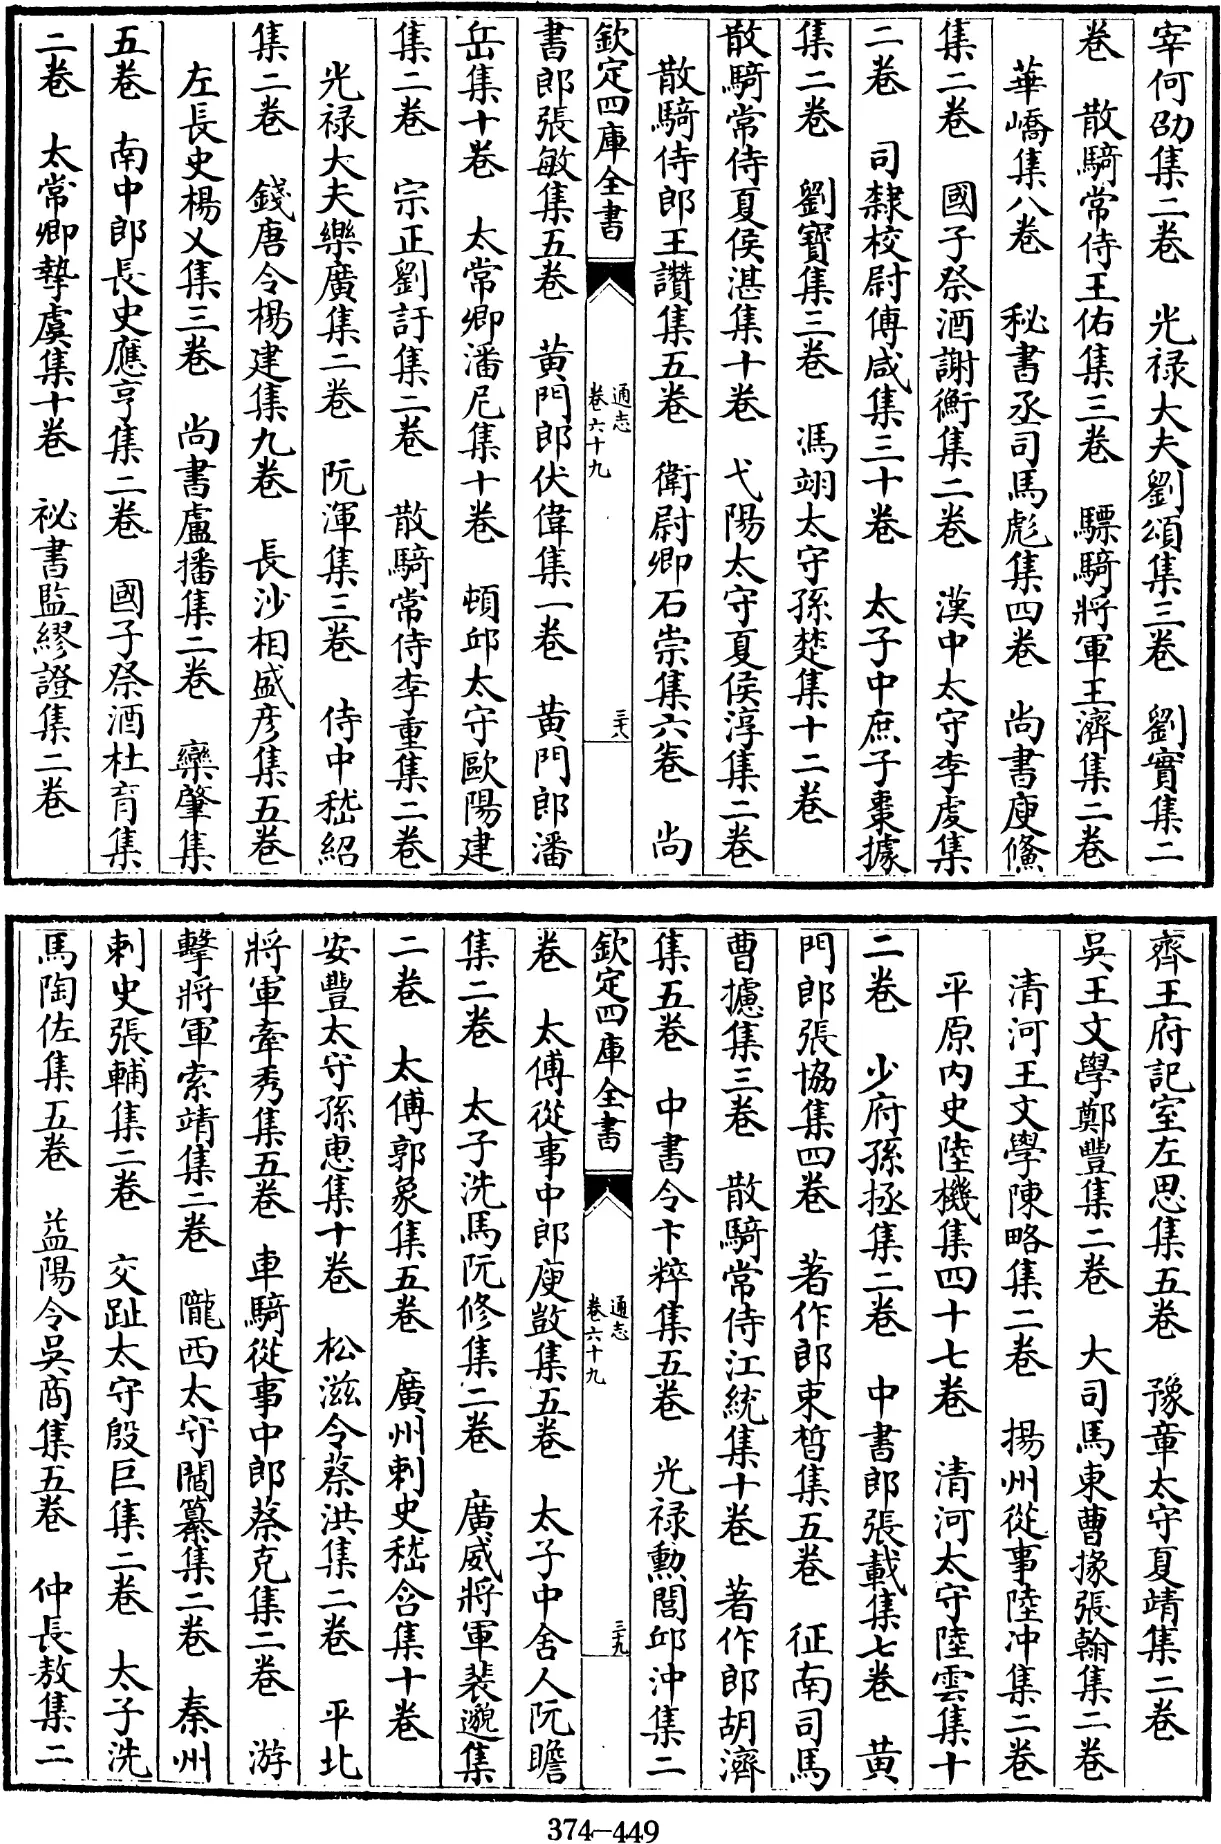 宰何劭集二卷　光禄大夫劉頌集三卷　劉實集二
卷　散騎常侍王佑集三卷　驃騎將軍王濟集二卷
華嶠集八卷　秘書丞司馬彪集四卷　尚書庾鯈
集二卷　國子祭酒謝衡集二卷　漢中太守李虔集
二卷　司隸校尉傅咸集三十卷　太子中庶子棗據
集二卷　劉寳集三卷　馮翊太守孫楚集十二卷
散騎常侍夏侯湛集十卷　弋陽太守夏侯淳集二卷
散騎侍郎王讚集五卷　衛尉卿石崇集六卷　尚
欽定四庫全書
通志
卷六十九
三十八
書郎張敏集五卷　黄門郎伏偉集一卷　黄門郎潘
岳集十卷　太常卿潘尼集十卷　頓邱太守歐陽建
集二卷　宗正劉訏集二卷　散騎常侍李重集二卷
光禄大夫樂廣集二卷　阮渾集三卷　侍中嵇紹
集二卷　錢唐令楊建集九卷　長沙相盛彦集五卷
左長史楊乂集三卷　尚書盧播集二卷　欒肇集
五卷　南中郎長史應亨集二卷　國子祭酒杜育集
二卷　太常卿摯虞集十卷　祕書監繆證集二卷
齊王府記室左思集五卷　豫章太守夏靖集二卷
吳王文學鄭豐集二卷　大司馬東曹掾張翰集二卷
清河王文學陳略集二卷　揚州從事陸冲集二卷
平原内史陸機集四十七卷　清河太守陸雲集十
二卷　少府孫拯集二卷　中書郎張載集七卷　黄
門郎張協集四卷　著作郎束晳集五卷　征南司馬
曹攄集三卷　散騎常侍江統集十卷　著作郎胡濟
集五卷　中書令卞粹集五卷　光禄勳閭邱沖集二
欽定四庫全書
通志
卷六十九
三十九
卷　太傅從事中郎庾敳集五卷　太子中舍人阮瞻
集二卷　太子洗馬阮修集二卷　廣威將軍裴邈集
二卷　太傅郭象集五卷　廣州刺史嵇含集十卷
安豐太守孫惠集十卷　松滋令蔡洪集二卷　平北
將軍牽秀集五卷　車騎從事中郎蔡克集二卷　游
擊將軍索靖集二卷　隴西太守閻纂集二卷　秦州
刺史張輔集二卷　交趾太守殷巨集二卷　太子洗
馬陶佐集五卷　益陽令吳商集五卷　仲長敖集二
374-449